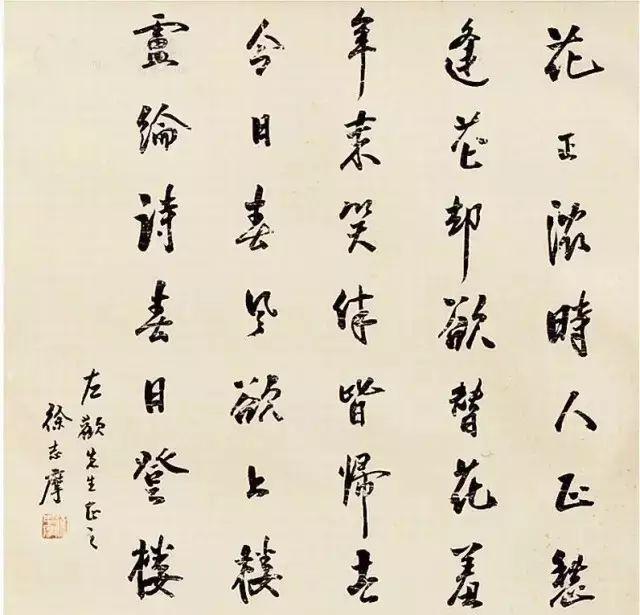 花正濃時人正愁
逢花却欲替花羞
年來笑伴皆歸去
今日春風欲上樓
盧綸詩春日登樓
左先生正之
徐志摩